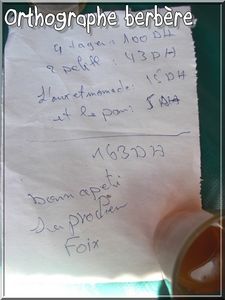 Orthographe berbère
4 tagen: 100 DH
2 petit: 43 DH
L'aurt momade: 15 DH
et le pan: 5 DH
163 DH
Bonn apeti
La prodien
Foix